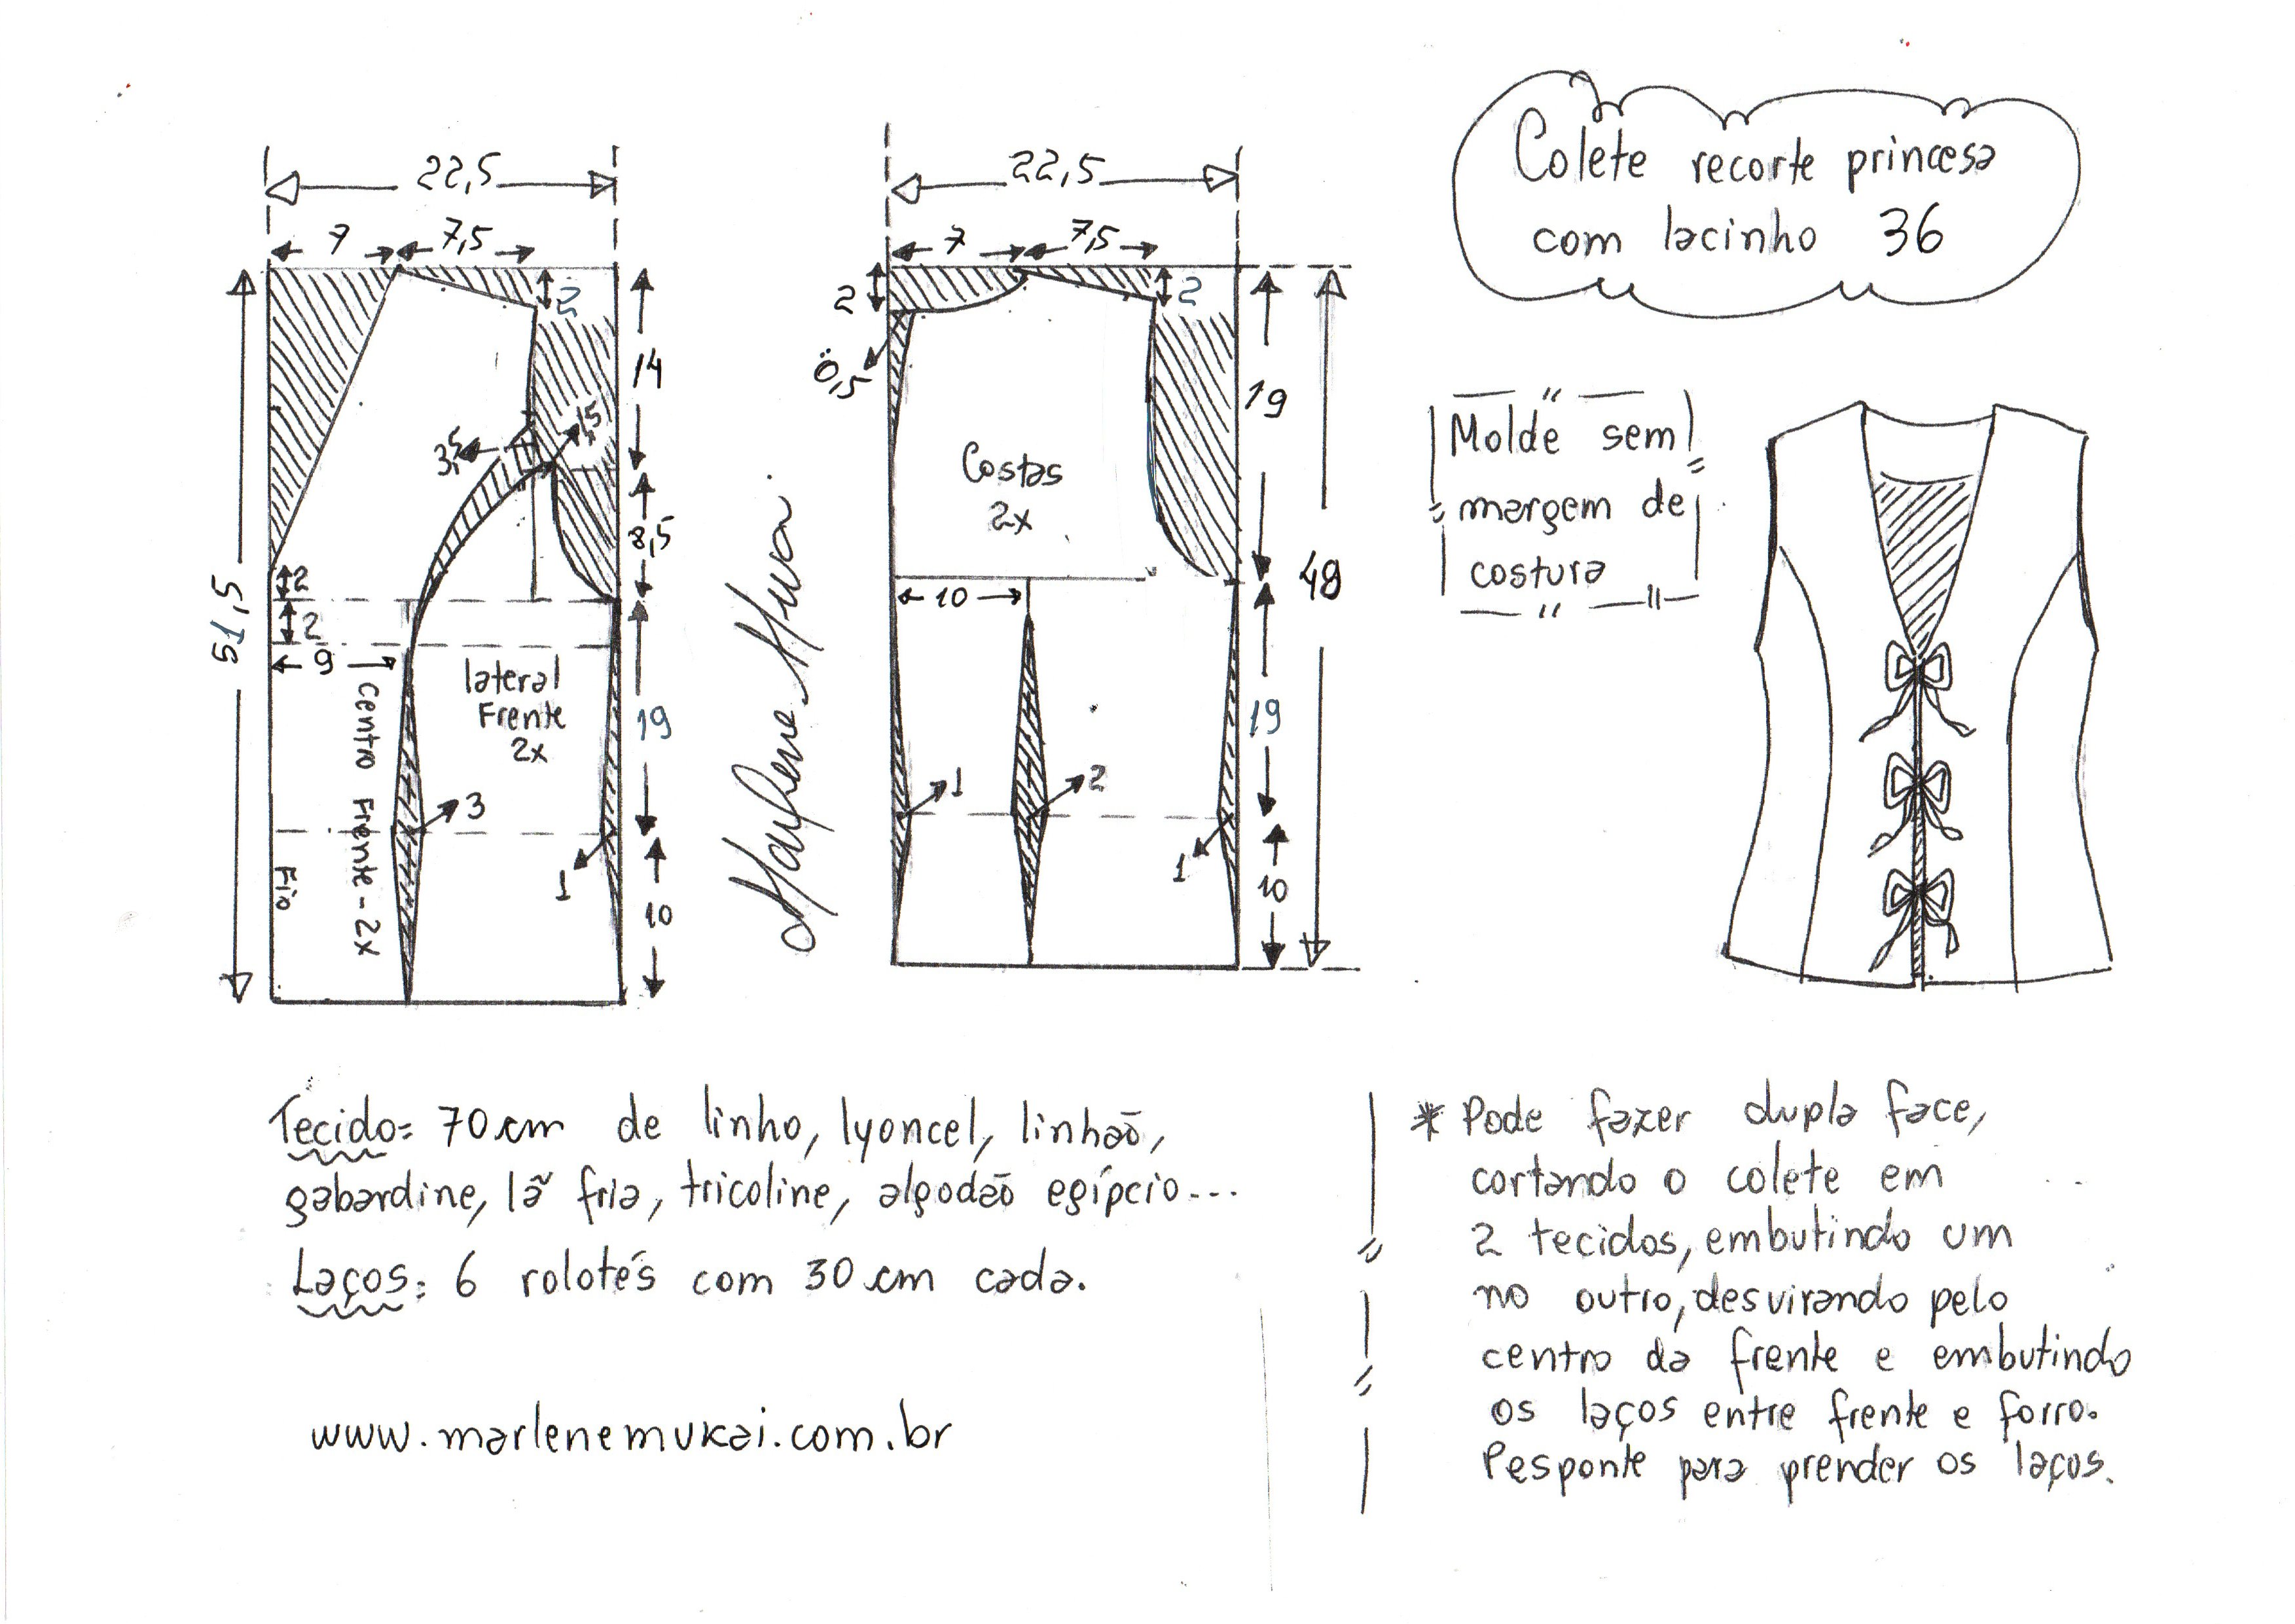 22,5
7
7,5
2
14
1,5
3,5
8,5
2
2
51,5
9
lateral
Frente
2x
Centro Frente - 2x
19
3
1
Fio
10
22,5
7
7,5
2
2
0,5
19
Costas
2x
48
10
19
1
2
1
10
Colete recorte princesa
com lacinho 36
Molde sem
margem de
costura
Tecido= 70 cm de linho, lyoncel, linhão,
gabardine, lã fria, tricoline, algodão egípcio...
Laços: 6 rolotês com 30 cm cada.
www.marlenemukai.com.br
* Pode fazer dupla face,
cortando o colete em
2 tecidos, embutindo um
no outro, desvirando pelo
centro da frente e embutindo
os laços entre frente e forro.
Pesponte para prender os laços.